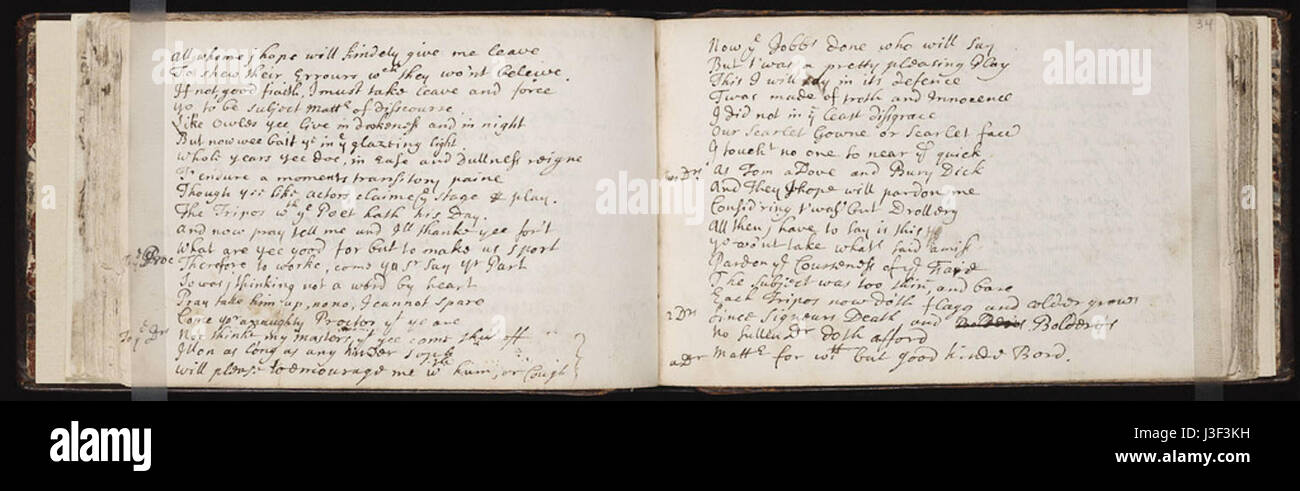 all whome j hope will kindely give me leave
To shew their Errours wch they won't beleive.
If not good faith, I must take leave and force
Yo to be subject mattr of discourse.
Like Owles yee live in darkness and in night
But now wee bait ye in ye glazeing light
Whole years yee doe, in Ease and Dullness reigne
To endure a moments transitory paine
Though yee like actors claime ye stage & play.
The Tripos wth ye Poet hath his Day.
And now pray tell me and I'll thanke yee for't
What are yee good for but to make us sport
Proc Therefore to worke, come Say yr Part
thinking not a word by heart
Pray take him up, nono, J cannot spare
Come naughty Proctor yt ye are
To ye Drs Not thinke my masters, yt yee come off
on as long as any
will please to encourage me wth hum, or Cough
34
Now ye Jobbs done who will say
But t'was a pretty pleasing Play
This I will say in its defence
Twas made of troth and Innocence
I did not in ye least disgrace
Our Scarlet Gowne or Scarlet face
I toucht no one to near ye quick
Drs As Tom a Dove and Bury Dick
And They I hope will pardon me
Consid'ring t'was but Drollery
All then j have to say is this
Yo wo'nt take whats said amiss
Pardon ye Courseness of ye
The subject was too thin and bare
Each Tripos now doth flagg and colder grows
2 Drs Since Signeurs Death and Boldero's
No sullen doth afford
a Dr Mattr for wtt but good Bord.
alamy
Image ID: J3F3KH
www.alamy.com